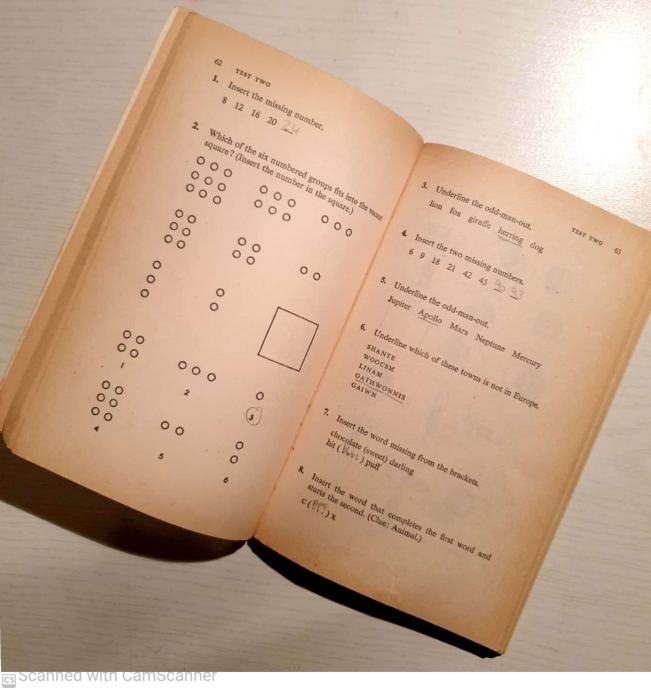 62 TEST TWO
1. Insert the missing number.
8 12 16 20 24
2. Which of the six numbered groups fits into the vacant
square? (Insert the number in the square.)
1
2
3
4
5
6
TEST TWO 63
3. Underline the odd-man-out.
lion fox giraffe herring dog
4. Insert the two missing numbers.
6 9 18 21 42 45 90 93
5. Underline the odd-man-out.
Jupiter Apollo Mars Neptune Mercury
6. Underline which of these towns is not in Europe.
SHANTE
WOOCSM
LINAM
GATHWONNIS
GAIWN
7. Insert the word missing from the brackets.
chocolate (sweet) darling
hit ( ) puff
8. Insert the word that completes the first word and
starts the second. (Clue: Animal.)
C (. . .) X
CS Scanned with CamScanner